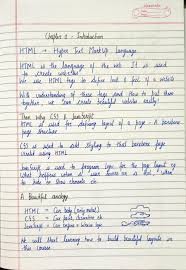 Chapter 1 - Introduction
HTML → Hyper Text Markup Language
HTML is the language of the web. It is used
to create websites.
We use HTML tags to define look & feel of a website
With understanding of these tags and how to put them
together, we can create beautiful websites easily!
Then why CSS & JavaScript
HTML is used for defining layout of a page - A barebone
page structure.
CSS is used to add styling to that barebone page
created using HTML.
JavaScript is used to program logic for the page layout eg.
What happens when a user hovers on a text, when
to hide or show elements etc.
A Beautiful analogy
HTML = Car body (only metal)
CSS = Car paint, decoration etc.
JavaScript = Car engine + interior logic
We will start learning how to build beautiful layouts in
this course.